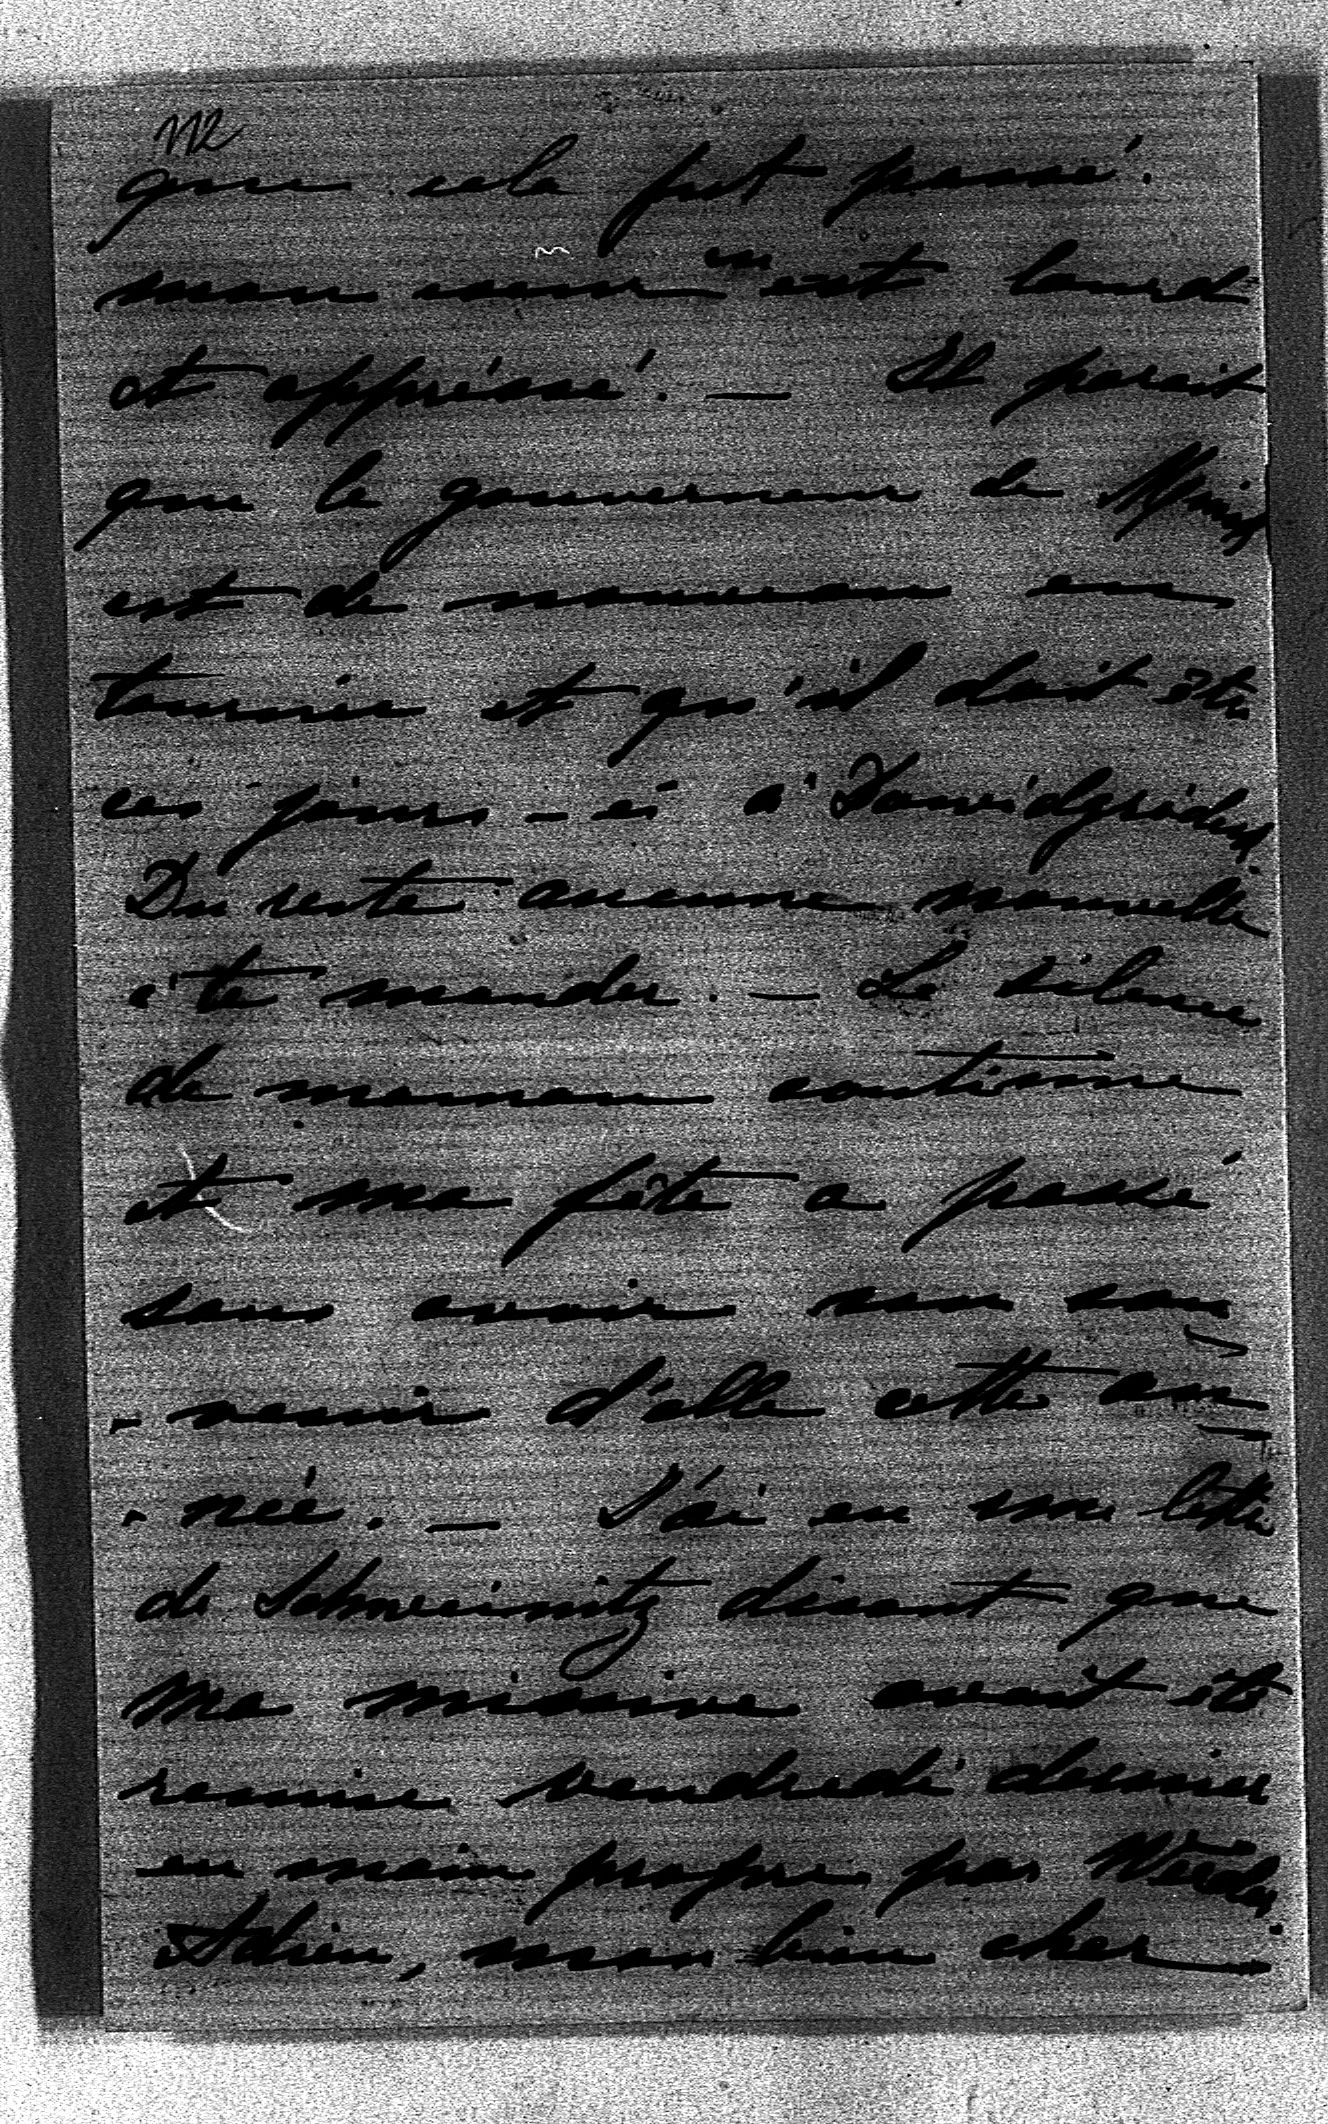 112
que cela fut passé.
mon coeur en est lourd
et appréssé. — Il parait
que le gouverneur de Minsk
est de nouveau en
tournée et qu'il doit être
ces jours-ci à Dawidgródek
Du reste aucune nouvelle
à te mander. — Le silence
de maman continue
et ma fête a passé
sans avoir un sou-
-venir d'elle cette an-
-née. — J'ai eu une lettre
de Schweinitz disant que
ma missive avait été
remise vendredi dernier
en main propre par Werder.
Adieu, mon bien cher